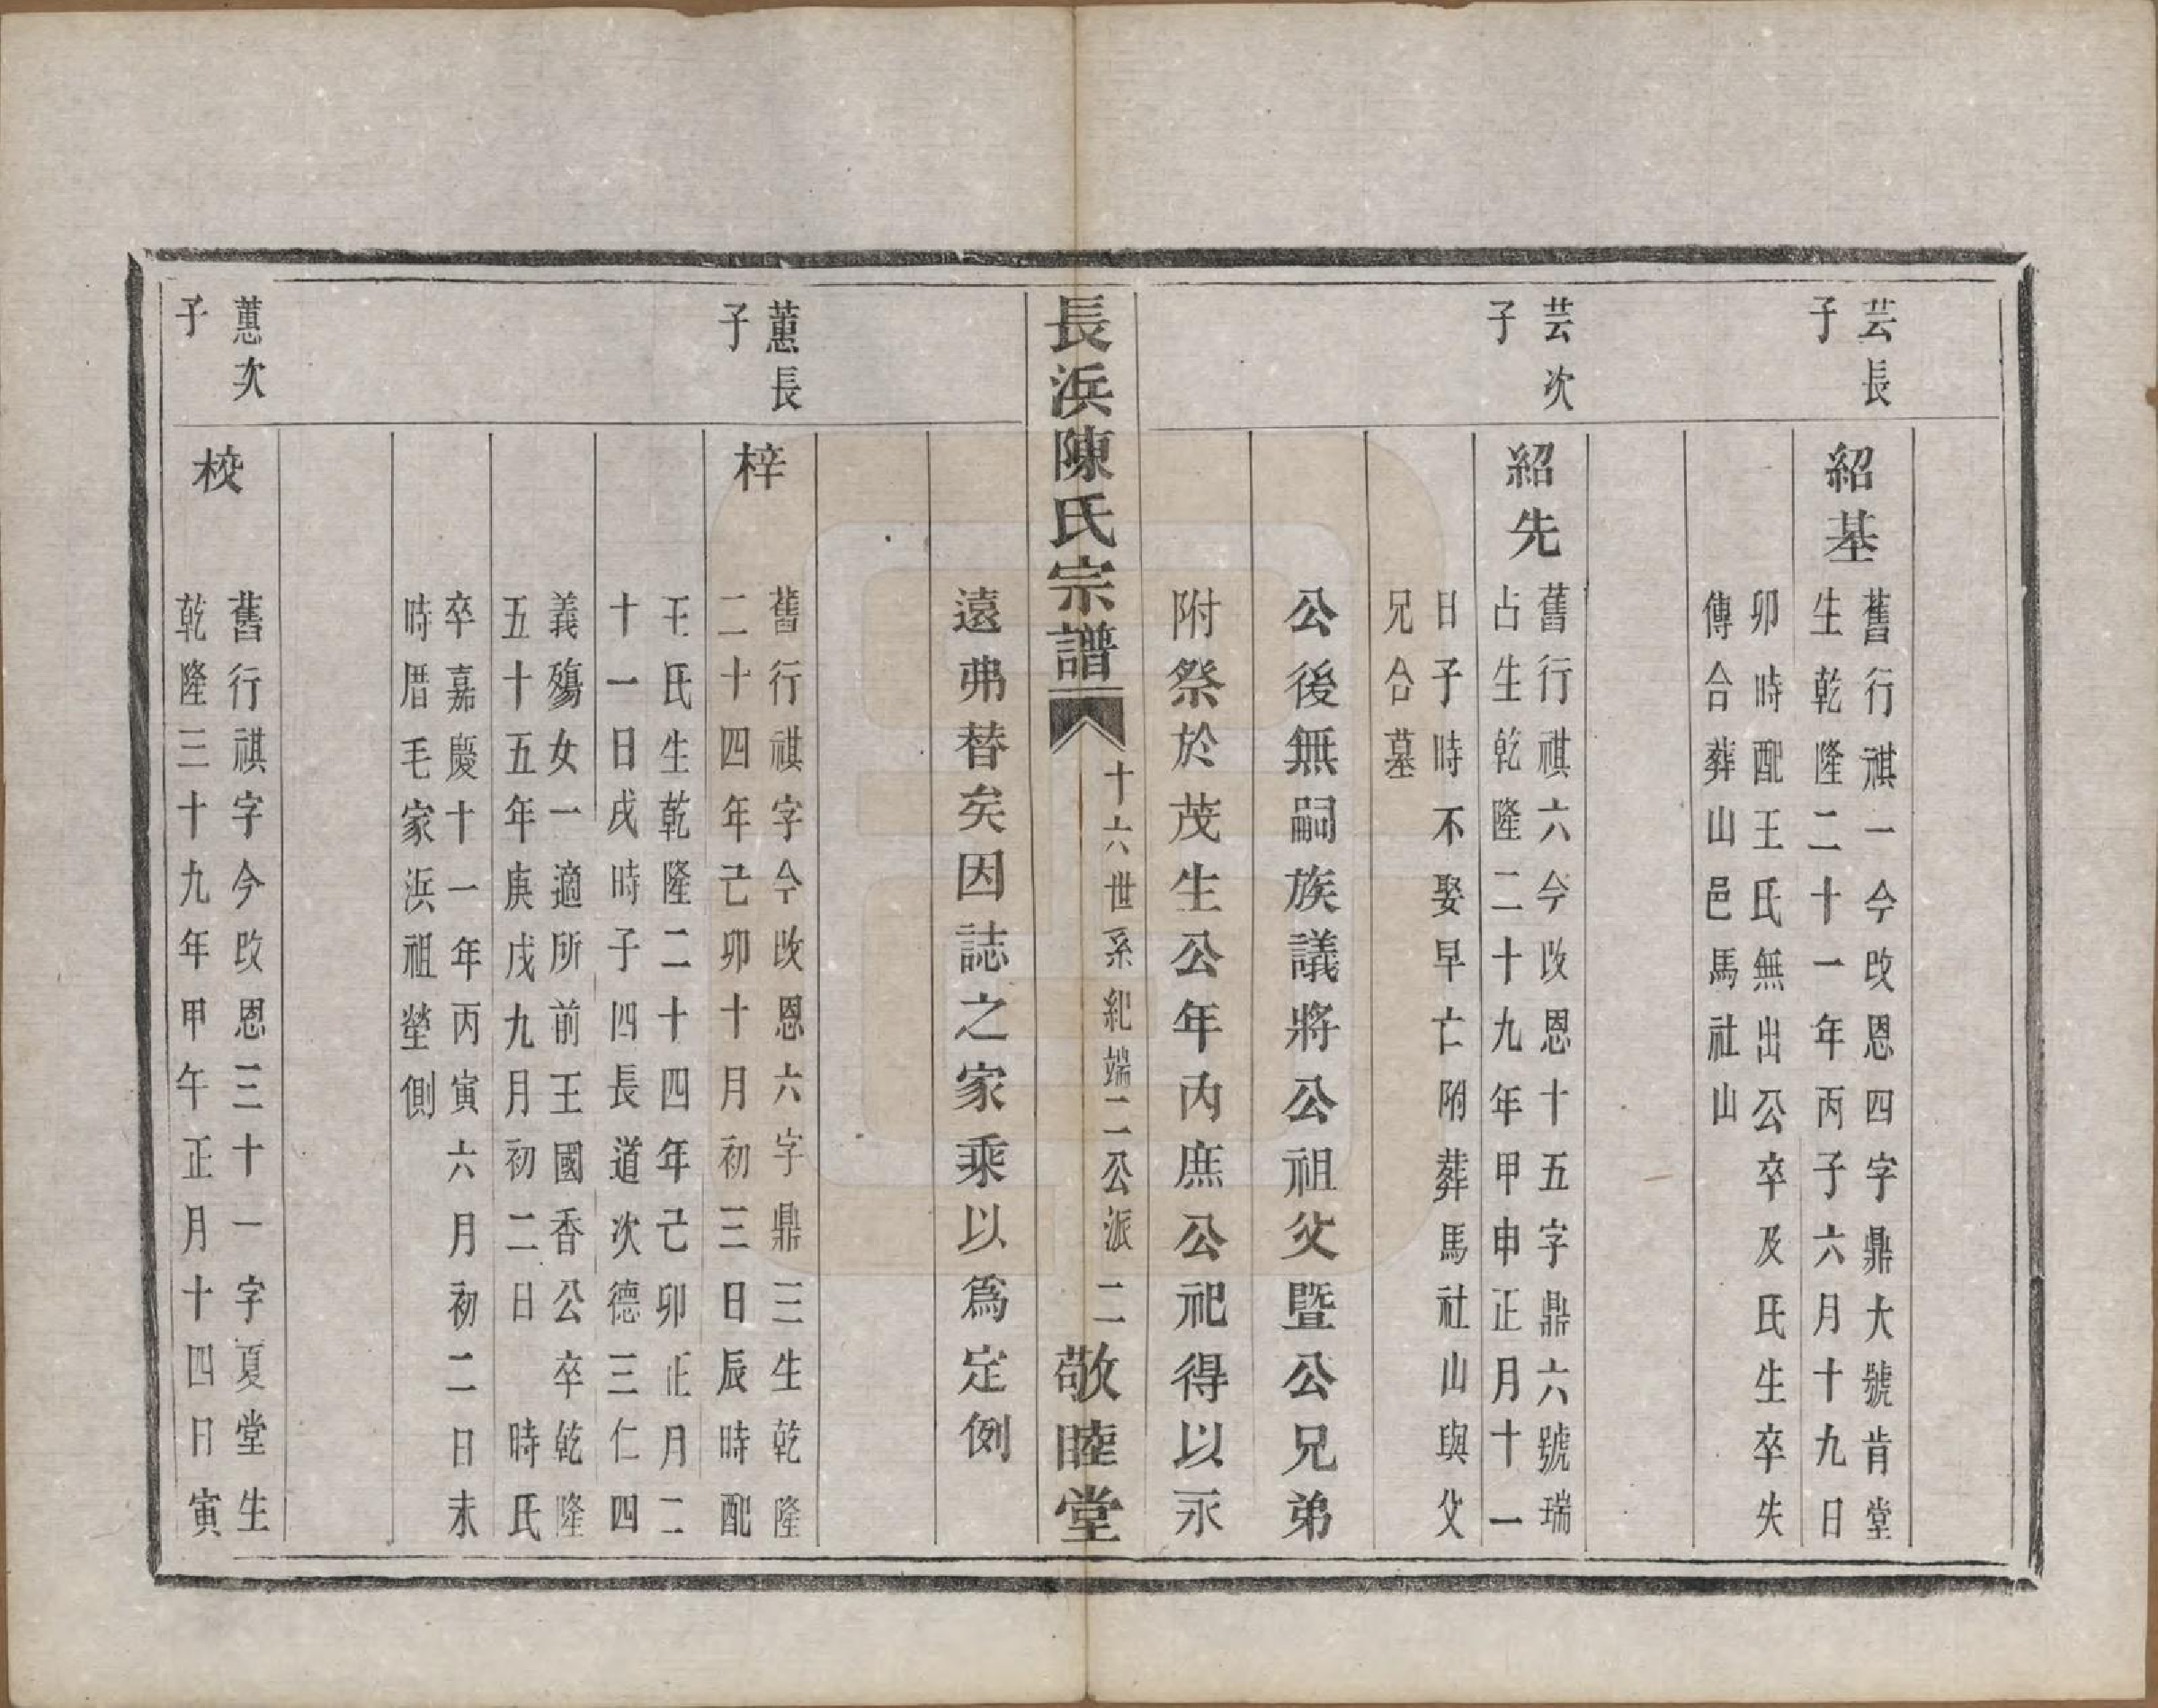 芸長
子
紹基
舊行祺一今改恩四字鼎大號肯堂
生乾隆二十一年丙子六月十九日
卯時配王氏無出公卒及氏生卒失
傳合葬山邑馬社山
芸次
子
紹先
舊行祺六今改恩十五字鼎六號瑞
占生乾隆二十九年甲申正月十一
日子時不娶早亡附葬馬社山與父
兄合墓
公後無嗣族議將公祖父暨公兄弟
附祭於茂生公年內庶公祀得以永
長浜陳氏宗譜
十六世系 紀端二公派 二
敬睦堂
遠弗替矣因誌之家乘以為定例
蕙長
子
梓
舊行祺字今改恩六字鼎三生乾隆
二十四年己卯十月初三日辰時配
王氏生乾隆二十四年己卯正月二
十一日戌時子四長道次德三仁四
義殤女一適所前王國香公卒乾隆
五十五年庚戌九月初二日 時氏
卒嘉慶十一年丙寅六月初二日未
時厝毛家浜祖塋側
蕙次
子
校
舊行祺字今改恩三十一字夏堂生
乾隆三十九年甲午正月十四日寅